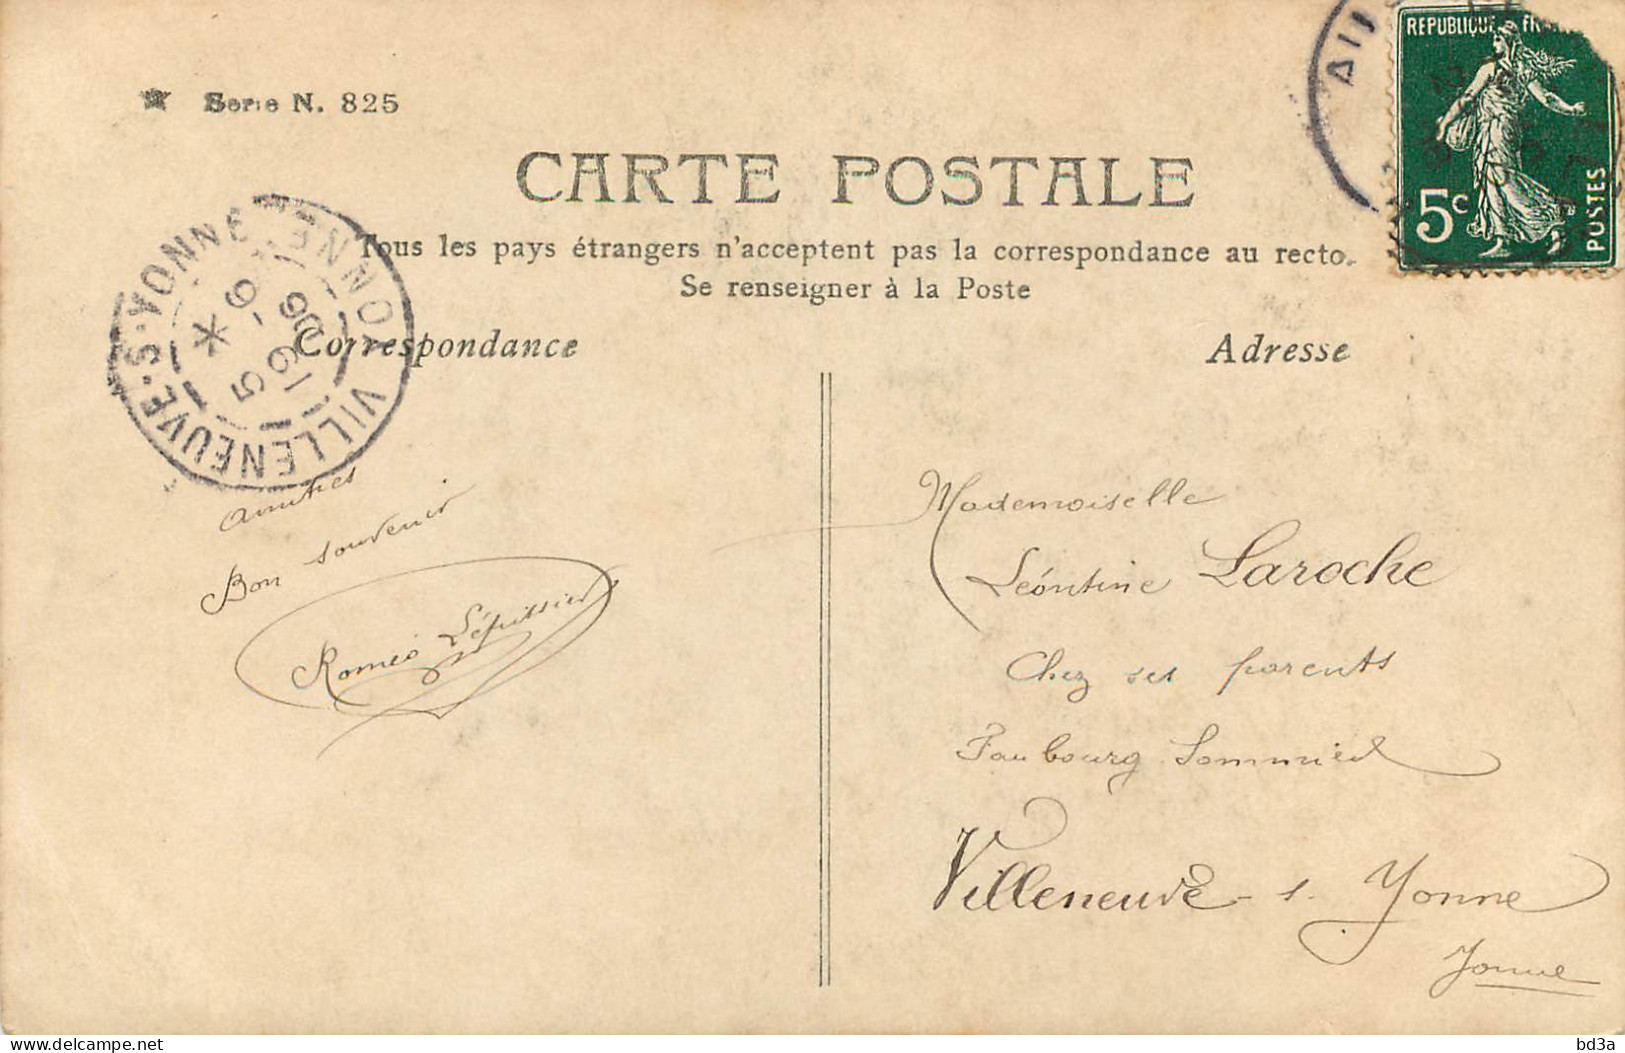 Serie N. 825
REPUBLIQUE FRA
5c
POSTES
CARTE POSTALE
Tous les pays étrangers n'acceptent pas la correspondance au recto.
Se renseigner à la Poste
Correspondance
Adresse
VILLENEUVE-S-YONNE YONNE
Amitiés
Bon souvenir
Roméo
Mademoiselle
Léontine Laroche
Chez ses parents
Faubourg
Villeneuve-s-Yonne
Yonne
bd3a